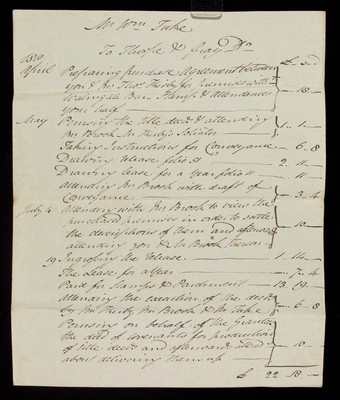 Mr. Wm. Tuke
To Thorpe & Gray Dr.
1820
£ s d
April Preparing purchase Agreement between
you & Mr. Thos. Hardy for premises with
Walmgate Bar Stamp & attendances
your half — 18 —
May Perusing the title deeds & attending
Mr. Brook Mr. Hardy's Solicitor 1 . 1 . —
Taking Instructions for Conveyance — 6 . 8
Drawing release folio 2 . 11 —
Drawing lease for a Year folio 11 — 11 —
Attending Mr. Brook with draft of
Conveyance — 3 . 4
July 4 Attending with Mr. Brook to view the
purchased premises in order to settle
the descriptions of them and afterwards
attending you & Mr. Brook thereon — 10 —
19 Ingrossing the release 1 . 14 —
The Lease for a Year — 7 . 4
Paid for Stamps & Parchment 13 . 19 . —
Attending the execution of the deeds
by Mr. Hardy Mr. Brook & Mr. Tuke — 6 . 8
Perusing on behalf of the Grantor
the deed of covenants for production
of title deeds and afterwards attend
about delivering them up — 10 —
£ 22 18 —